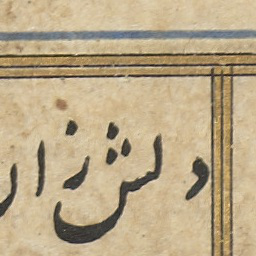 دلش زار